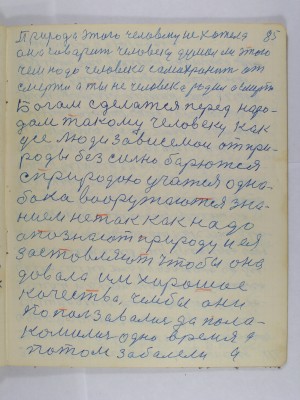 Природа этого человеку не хотела 85
она говорит человеку думал ли этого
чем надо человека самахранит от
смерти а ты не человека родил а смерть
Богам сделатся перед наро-
дам такому человеку как
усе люди зависемои от при-
роды без силно барются
с природою учатся одна-
бока вооружаются зна-
нием не так как надо
а познают природу и ея
застовляют чтобы она
довала им харошие
качества, чтобы они
Ползавались да пола-
комились одно время а
потом забалели Я